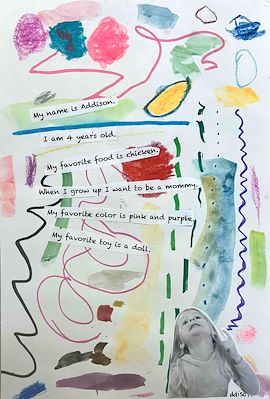 My name is Addison.
I am 4 years old.
My favorite food is chicken.
When I grow up I want to be a mommy.
My favorite color is pink and purple.
My favorite toy is a doll.